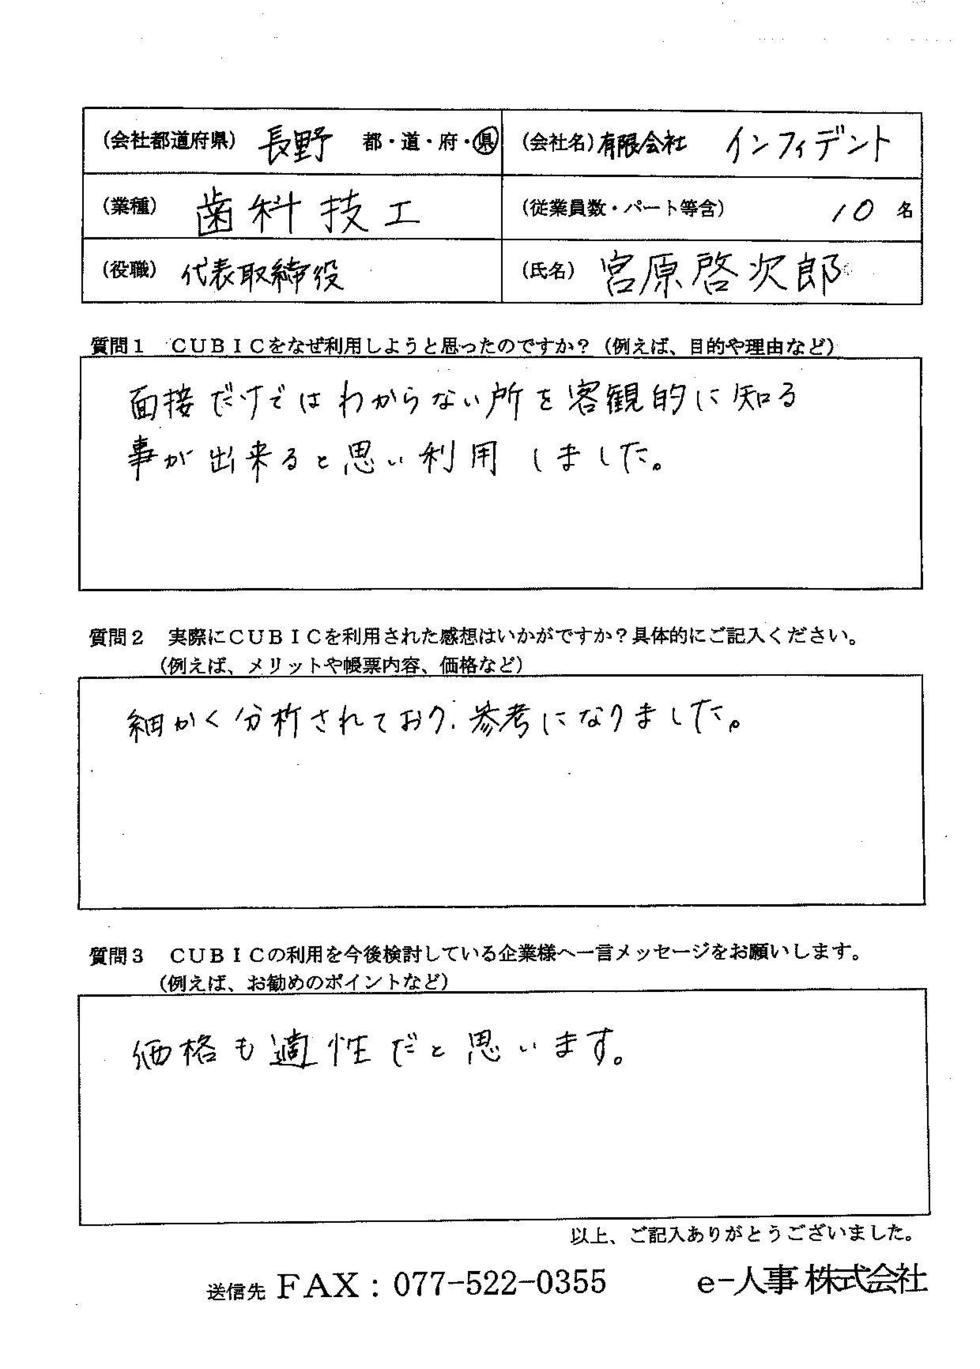 (会社都道府県) 長野 都・道・府・県 (会社名) 有限会社 インフィデント
(業種) 歯科技工 (従業員数・パート等含) 10 名
(役職) 代表取締役 (氏名) 宮原啓次郎
質問１ ＣＵＢＩＣをなぜ利用しようと思ったのですか？(例えば、目的や理由など)
面接だけではわからない所を客観的に知る
事が出来ると思い利用しました。
質問２ 実際にＣＵＢＩＣを利用された感想はいかがですか？具体的にご記入ください。
(例えば、メリットや帳票内容、価格など)
細かく分析されており、参考になりました。
質問３ ＣＵＢＩＣの利用を今後検討している企業様へ一言メッセージをお願いします。
(例えば、お勧めのポイントなど)
価格も適性だと思います。
以上、ご記入ありがとうございました。
送信先 FAX：077-522-0355 e-人事 株式会社